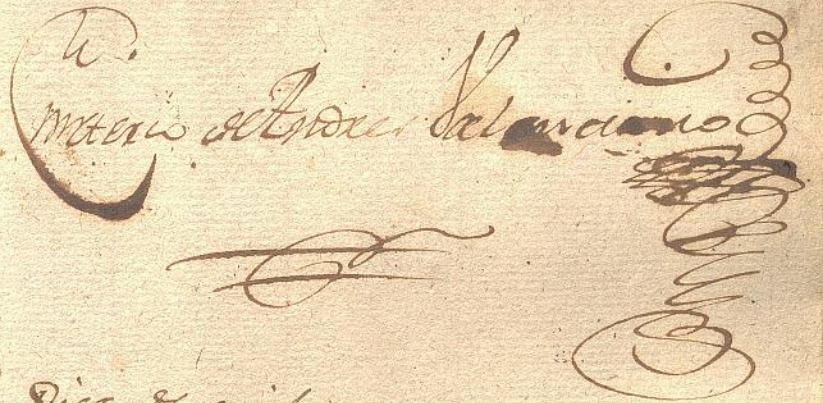 Emeterio de Andres Valenciano